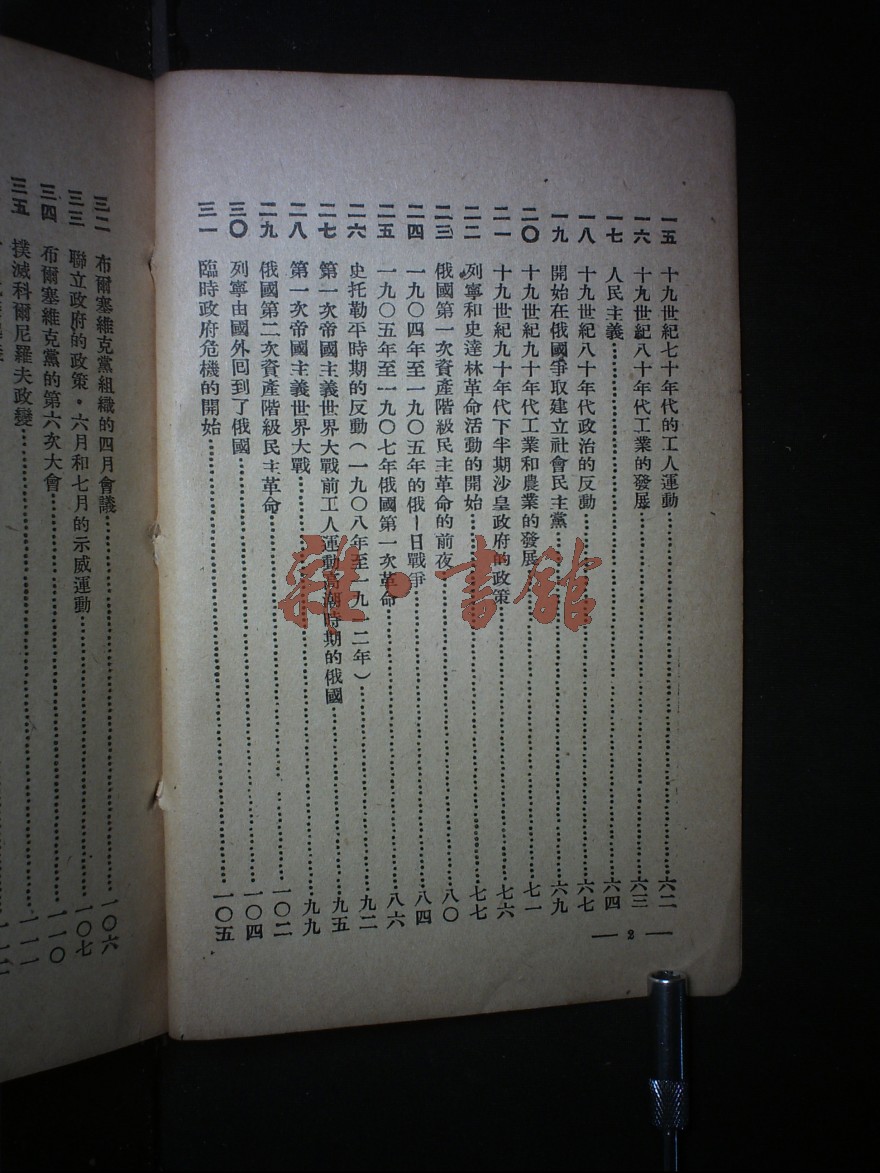 一五 十九世紀七十年代的工人運動 六二
一六 十九世紀八十年代工業的發展 六三
一七 人民主義 六四
一八 十九世紀八十年代政治的反動 六七
一九 開始在俄國爭取建立社會民主黨 六九
二〇 十九世紀九十年代工業和農業的發展 七一
二一 十九世紀九十年代下半期沙皇政府的政策 七六
二二 列寧和史達林革命活動的開始 七七
二三 俄國第一次資產階級民主革命的前夜 八〇
二四 一九〇四年至一九〇五年的俄—日戰爭 八四
二五 一九〇五年至一九〇七年俄國第一次革命 八六
二六 史托勒平時期的反動（一九〇八年至一九一二年） 九二
二七 第一次帝國主義世界大戰前工人運動高潮時期的俄國 九五
二八 第一次帝國主義世界大戰 九九
二九 俄國第二次資產階級民主革命 一〇二
三〇 列寧由國外回到了俄國 一〇四
三一 臨時政府危機的開始 一〇五
— 2 —
三二 布爾塞維克黨組織的四月會議 一〇六
三三 聯立政府的政策・六月和七月的示威運動 一〇七
三四 布爾塞維克黨的第六次大會 一一〇
三五 撲滅科爾尼羅夫政變 一一一
雜・書館